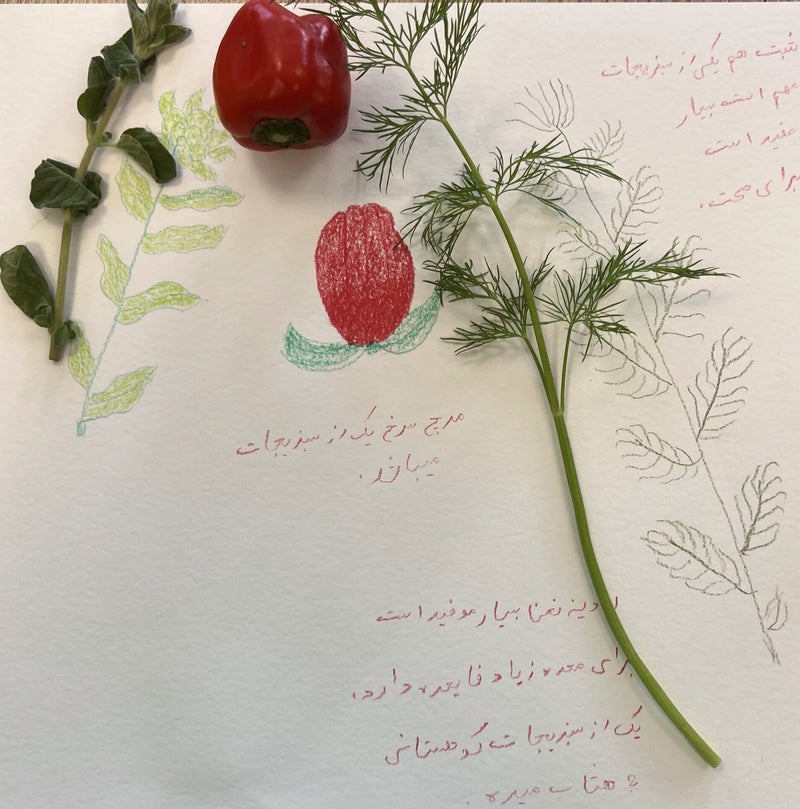 شبت هم یکی از سبزیجات
مهم است بسیار
مفید است
برای صحت.
مرچ سرخ یک از سبزیجات
میباشد.
ادویه نعنا بسیار موفید است
برای معده زیاد فایعده دارد.
یک از سبزیجات کوهستانی
حساب میره.